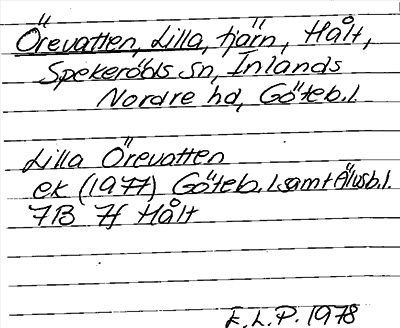 Örevatten, Lilla, tjärn, Hålt,
Spekeröds sn, Inlands
Nordre hd, Göteb. l.
Lilla Örevatten
ek (1977) Göteb. l samt Älvsb. l.
7B 7f Hålt
E. L. P. 1978